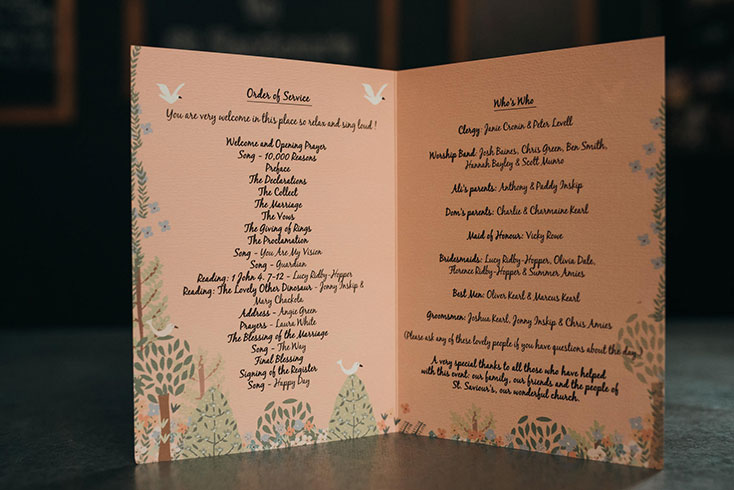 Order of Service
You are very welcome in this place so relax and sing loud !
Welcome and Opening Prayer
Song - 10,000 Reasons
Preface
The Declarations
The Collect
The Marriage
The Vows
The Giving of Rings
The Proclamation
Song - You Are My Vision
Song - Guardian
Reading: 1 John 4. 7-12 - Lucy Ridby-Hopper
Reading: The Lovely Other Dinosaur - Jonny Inskip &
Mary Chackola
Address - Angie Green
Prayers - Laura White
The Blessing of the Marriage
Song - The Way
Final Blessing
Signing of the Register
Song - Happy Day
Who's Who
Clergy: Janie Cronin & Peter Levell
Worship Band: Josh Baines, Chris Green, Ben Smith,
Hannah Bayley & Scott Munro
Ali's parents: Anthony & Paddy Inskip
Dom's parents: Charlie & Charmaine Kearl
Maid of Honour: Vicky Rowe
Bridesmaids: Lucy Ridby-Hopper, Olivia Dale,
Florence Ridby-Hopper & Summer Amies
Best Men: Oliver Kearl & Marcus Kearl
Groomsmen: Joshua Kearl, Jonny Inskip & Chris Amies
(Please ask any of these lovely people if you have questions about the day!)
A very special thanks to all those who have helped
with this event: our family, our friends and the people of
St. Saviour's, our wonderful church.